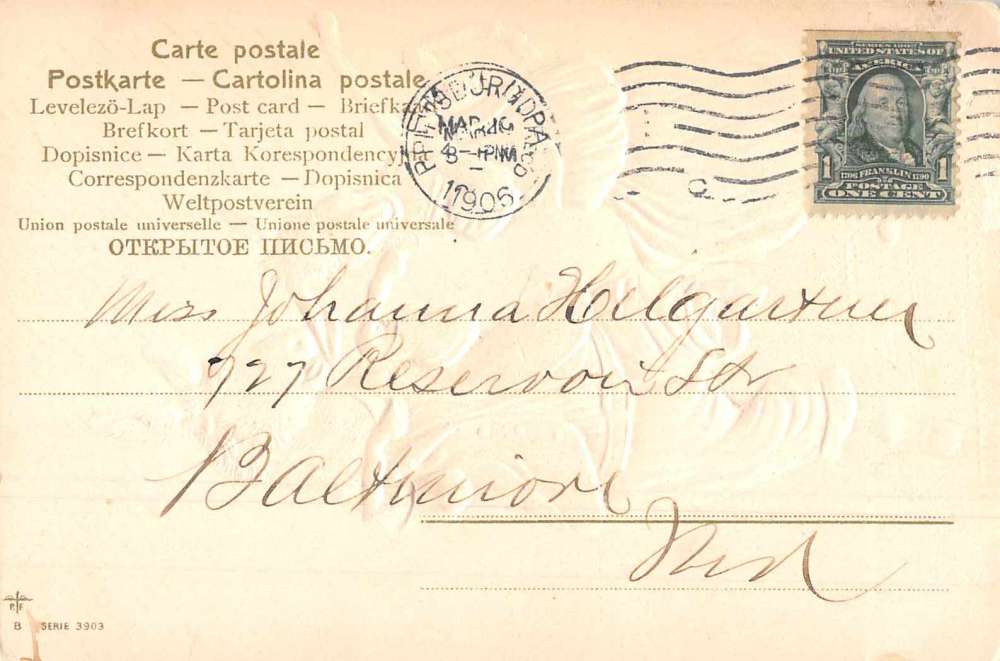 Carte postale
Postkarte — Cartolina postale
Levelező-Lap — Post card — Briefkaart
Brefkort — Tarjeta postal
Dopisnice — Karta Korespondencyjna
Correspondenzkarte — Dopisnica
Weltpostverein
Union postale universelle — Unione postale universale
ОТКРЫТОЕ ПИСЬМО.
1906
SERIES 1902
UNITED STATES OF
AMERICA
1706 FRANKLIN 1790
1 POSTAGE 1
ONE CENT
Miss Johanna Hilgartner
727 Reservoir Str
Baltimore
Md
P.F.
B SERIE 3903